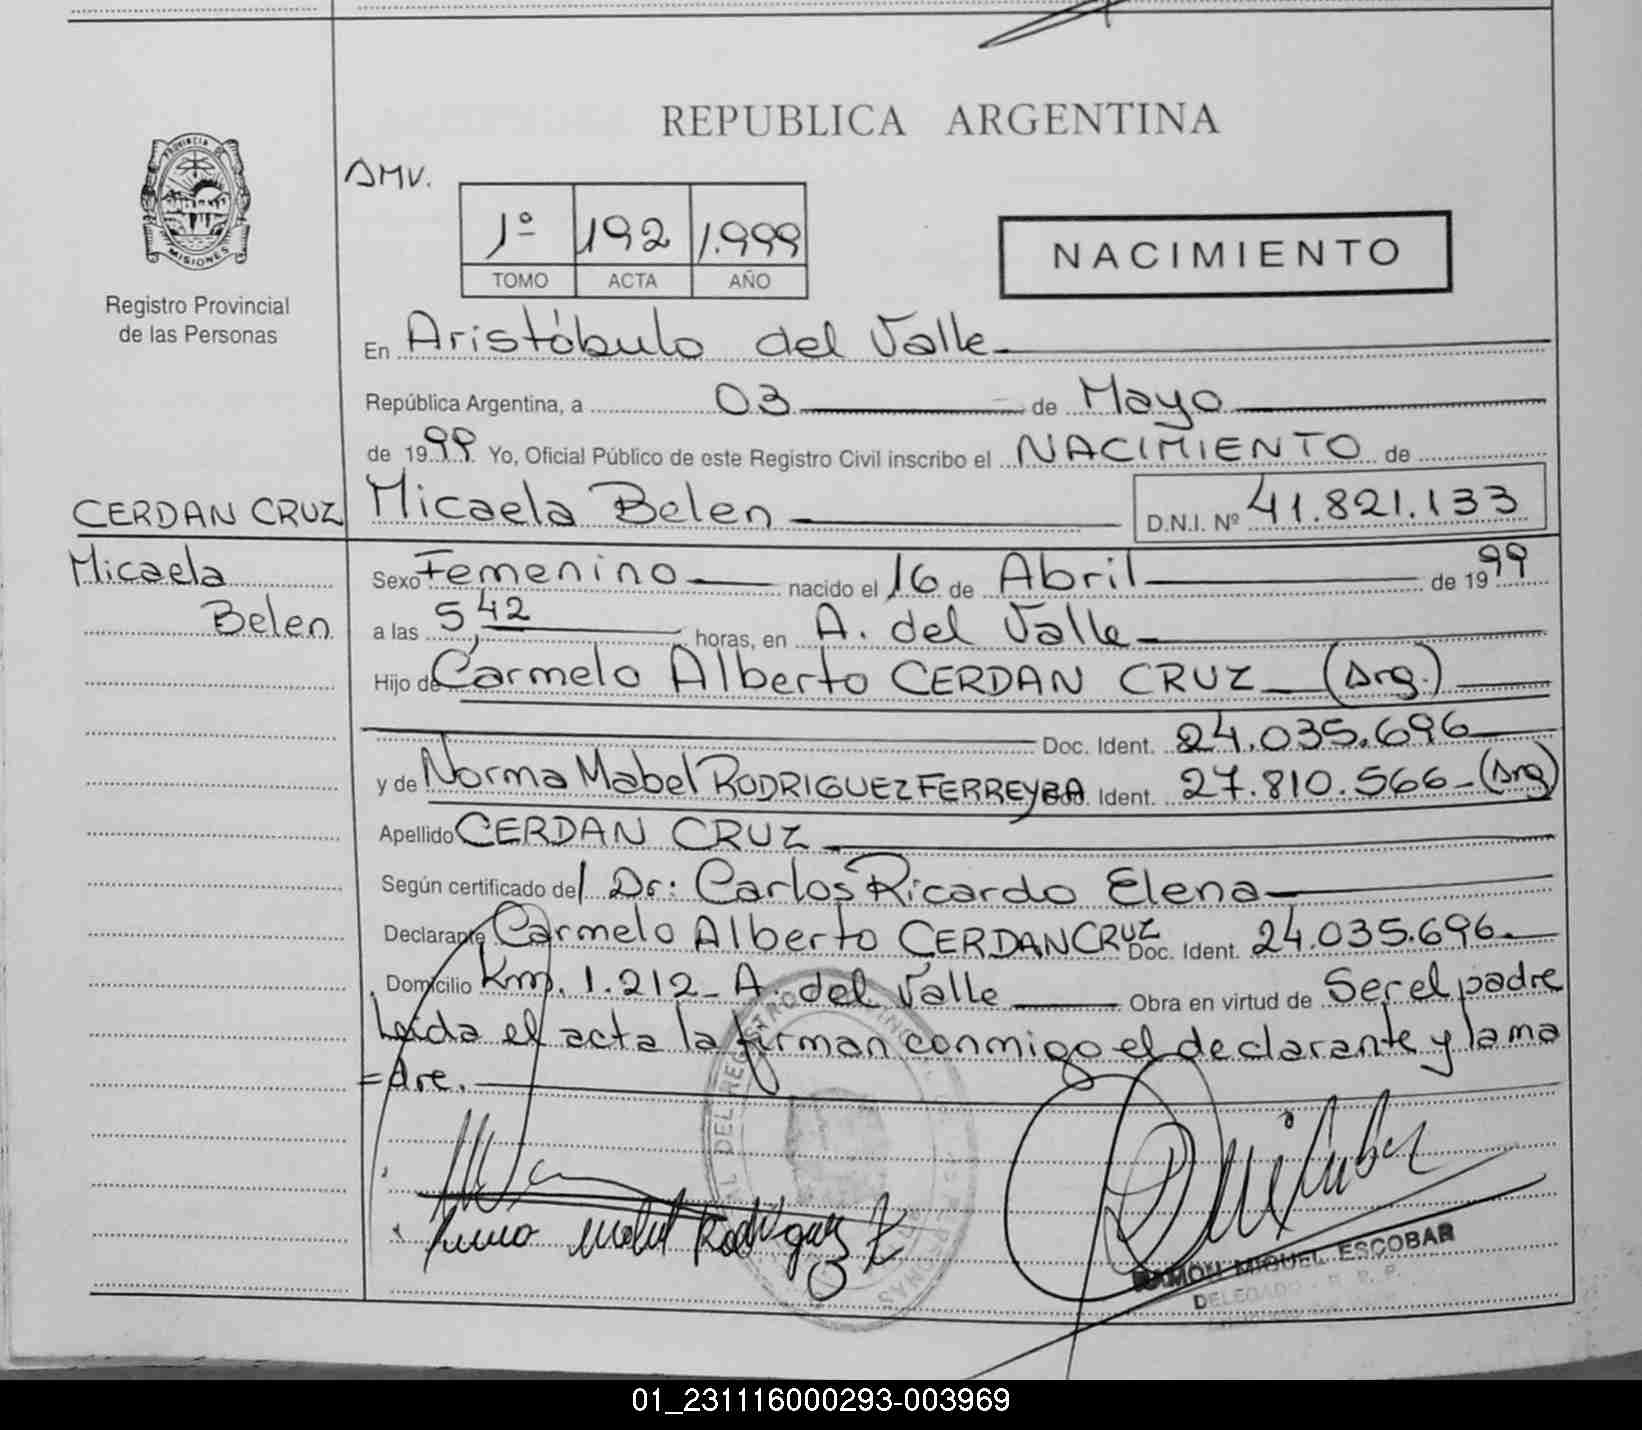 REPUBLICA ARGENTINA
PROVINCIA DE MISIONES
AMV.
1º 192 1.999
TOMO ACTA AÑO
NACIMIENTO
Registro Provincial
de las Personas
En Aristóbulo del Valle
República Argentina, a 03 de Mayo
de 1999 Yo, Oficial Público de este Registro Civil inscribo el NACIMIENTO de
CERDAN CRUZ
Micaela
Belen
Micaela Belen D.N.I. Nº 41.821.133
Sexo Femenino nacido el 16 de Abril de 1999
a las 5,42 horas, en A. del Valle
Hijo de Carmelo Alberto CERDAN CRUZ (Arg.)
Doc. Ident. 24.035.696
y de Norma Mabel RODRIGUEZ FERREYRA Doc. Ident. 27.810.566 (Arg)
Apellido CERDAN CRUZ
Según certificado del Dr: Carlos Ricardo Elena
Declarante Carmelo Alberto CERDAN CRUZ Doc. Ident. 24.035.696.
Domicilio Km. 1.212 - A. del Valle Obra en virtud de Ser el padre
Leída el acta la firman conmigo el declarante y la ma
=dre.
Mabel Rodriguez F
RAMON MIGUEL ESCOBAR
DELEGADO R. R. P.
01_231116000293-003969